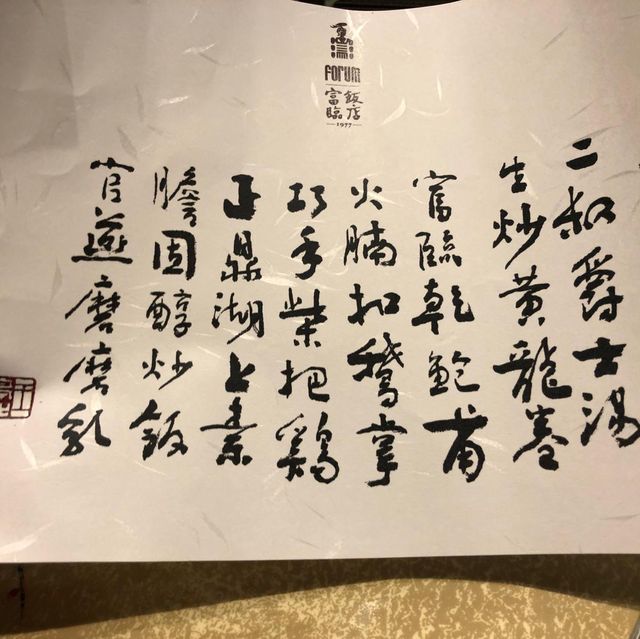 FORUM
富臨
飯店
1977
二叔爵士湯
生炒黃龍卷
富臨乾鮑甫
火腩扣鵝掌
巧手柴把鷄
正鼎湖上素
膽固醇炒飯
官燕磨磨乳